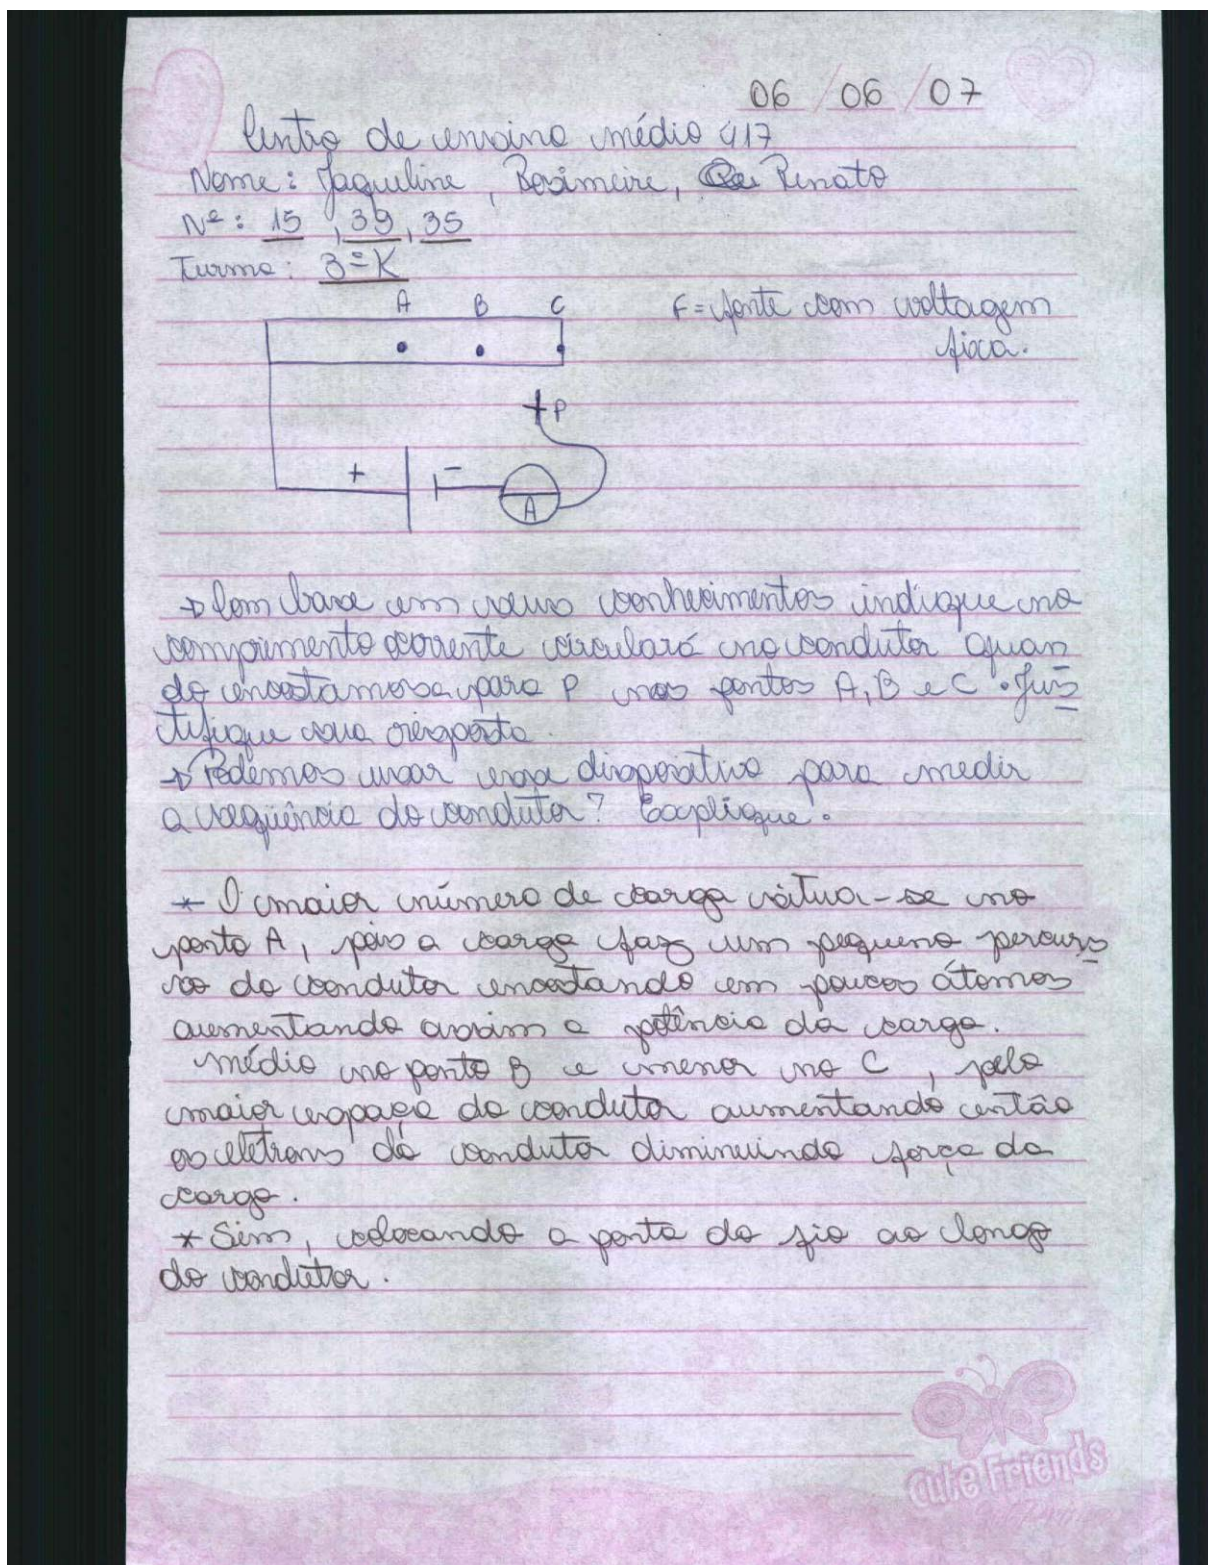 06 / 06 / 07
Centro de ensino médio 417
Nome: Jaqueline, Rosimeire, Renato
Nº: 15, 39, 35
Turma: 3º K
A B C F = fonte com voltagem
fixa.
P
+ -
A
→ Com base em seus conhecimentos indique no
comprimento corrente circulará no condutor quan
do encostamos a para P nos pontos A, B e C. Jus
tifique sua resposta.
→ Podemos usar esse dispositivo para medir
a seqüência do condutor? Explique.
* O maior número de carga situa-se no
ponto A, pois a carga faz um pequeno percurs
so do condutor encostando em poucos átomos
aumentando assim a potência da carga.
médio no ponto B e menor no C, pelo
maior espaço do condutor aumentando então
os eletrons do condutor diminuindo força da
carga.
* Sim, colocando a ponta do fio ao longo
do condutor.
Cute Friends